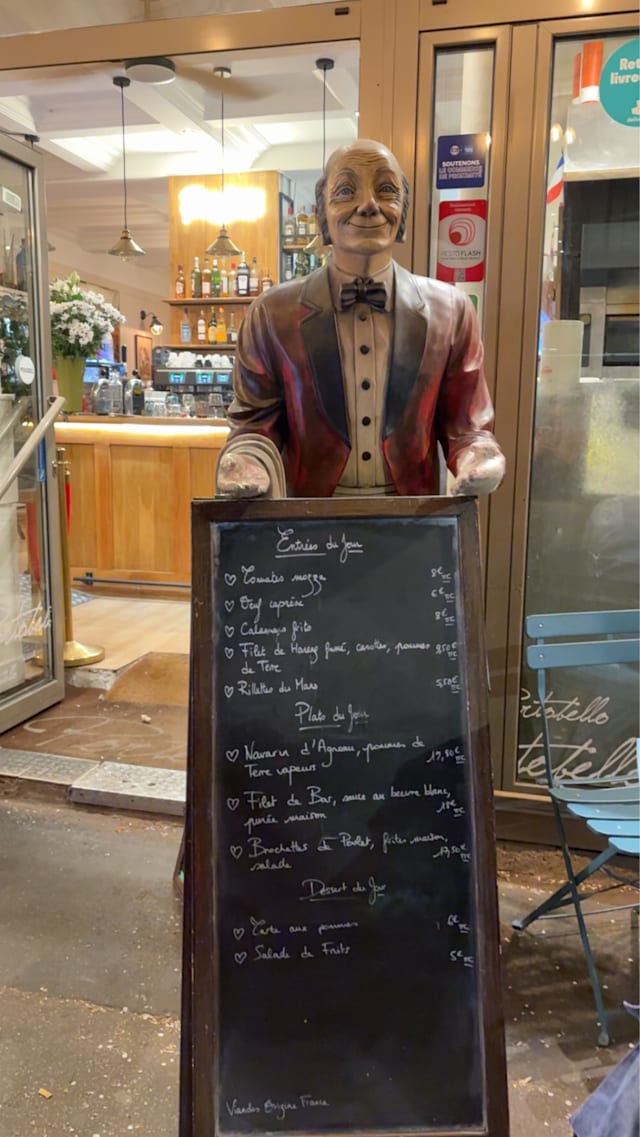 Ret
livre
SOUTENONS
LE COMMERCE
DE PROXIMITÉ
RESTO FLASH
Entrées du Jour
Tomates mozza 8€ TTC
Œuf caprése 6€ TTC
Calamars frits 8€ TTC
Filet de Hareng fumé, carottes, pommes 9,50€ TTC
de Terre
Rillettes du Mans 5,50€ TTC
Plats du Jour
Navarin d'Agneau, pommes de 19,80€ TTC
Terre vapeurs
Filet de Bar, sauce au beurre blanc,
purée maison 18€ TTC
Brochettes de Poulet, frites maison,
salade 17,50€ TTC
Dessert du Jour
Tarte aux pommes 6€ TTC
Salade de Fruits 5€ TTC
Viandes Origine France
rtobello
tobello